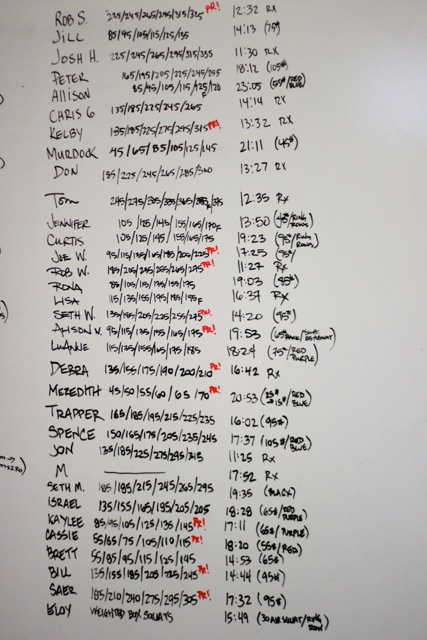 ROB S. 225/245/265/295/315/325 PR! 12:32 RX
JILL 85/95/105/115/125/135 14:13 (75#)
JOSH H. 225/245/265/295/315/335 11:30 RX
PETER 165/195/205/225/245/255 18:12 (105#)
ALLISON 85/95/105/115/125/120 23:05 (55#/RED/BLUE)
CHRIS G 135/185/225/245/265 14:14 RX
KELBY 135/185/225/275/295/315 PR! 13:32 RX
MURDOCK 45/65/85/105/125/145 21:11 (45#)
DON 185/225/245/265/285/300 13:27 RX
TOM 245/275/305/335/365/385F/375 12:35 RX
JENNIFER 105/125/145/155/165/170F 13:50 (45#/RING ROWS)
CURTIS 105/125/145/155/165/175 19:23 (95#/RING ROWS)
JOE W. 95/115/135/165/185/205/225 PR! 17:25 (95#)
ROB W. 185/215/245/255/265/275 PR! 11:27 RX
RONA 85/105/115/135/155/175 19:03 (85#)
LISA 115/135/155/175/185/195F 16:37 RX
SETH W. 135/185/205/225/255/275 PR! 14:20 (95#)
ALISON V. 95/115/135/155/165/175 PR! 19:53 (65#
LUANNE 115/135/155/165/175/185 18:24 (75#/RED PURPLE)
DEBRA 135/155/175/190/200/210 PR! 16:42 RX
MEREDITH 45/50/55/60/65/70 PR! 20:53 (25# → 15#/RED BLUE)
TRAPPER 165/185/195/215/225/235 16:02 (95#)
SPENCE 150/165/175/205/235/245 17:37 (105#/RED/BLUE)
JON 135/185/225/275/295/315 11:25 RX
M 17:52 RX
SETH M. 185/185/215/245/265/295 19:35 (BLACK)
ISRAEL 135/155/165/195/205/205 18:28 (65#/RED PURPLE)
KAYLEE 85/95/105/125/135/145 PR! 17:11 (65#/PURPLE)
CASSIE 55/65/75/105/110/115 PR! 18:20 (55#/RED)
BRETT 55/85/95/115/125/145 14:53 (65#)
BILL 135/155/185/205/225/245 PR! 14:44 (95#)
SAER 185/210/240/275/295/305 PR! 17:32 (95#)
ELOY WEIGHTED BOX SQUATS 15:49 (30 AIR SQUAT/RING ROW)